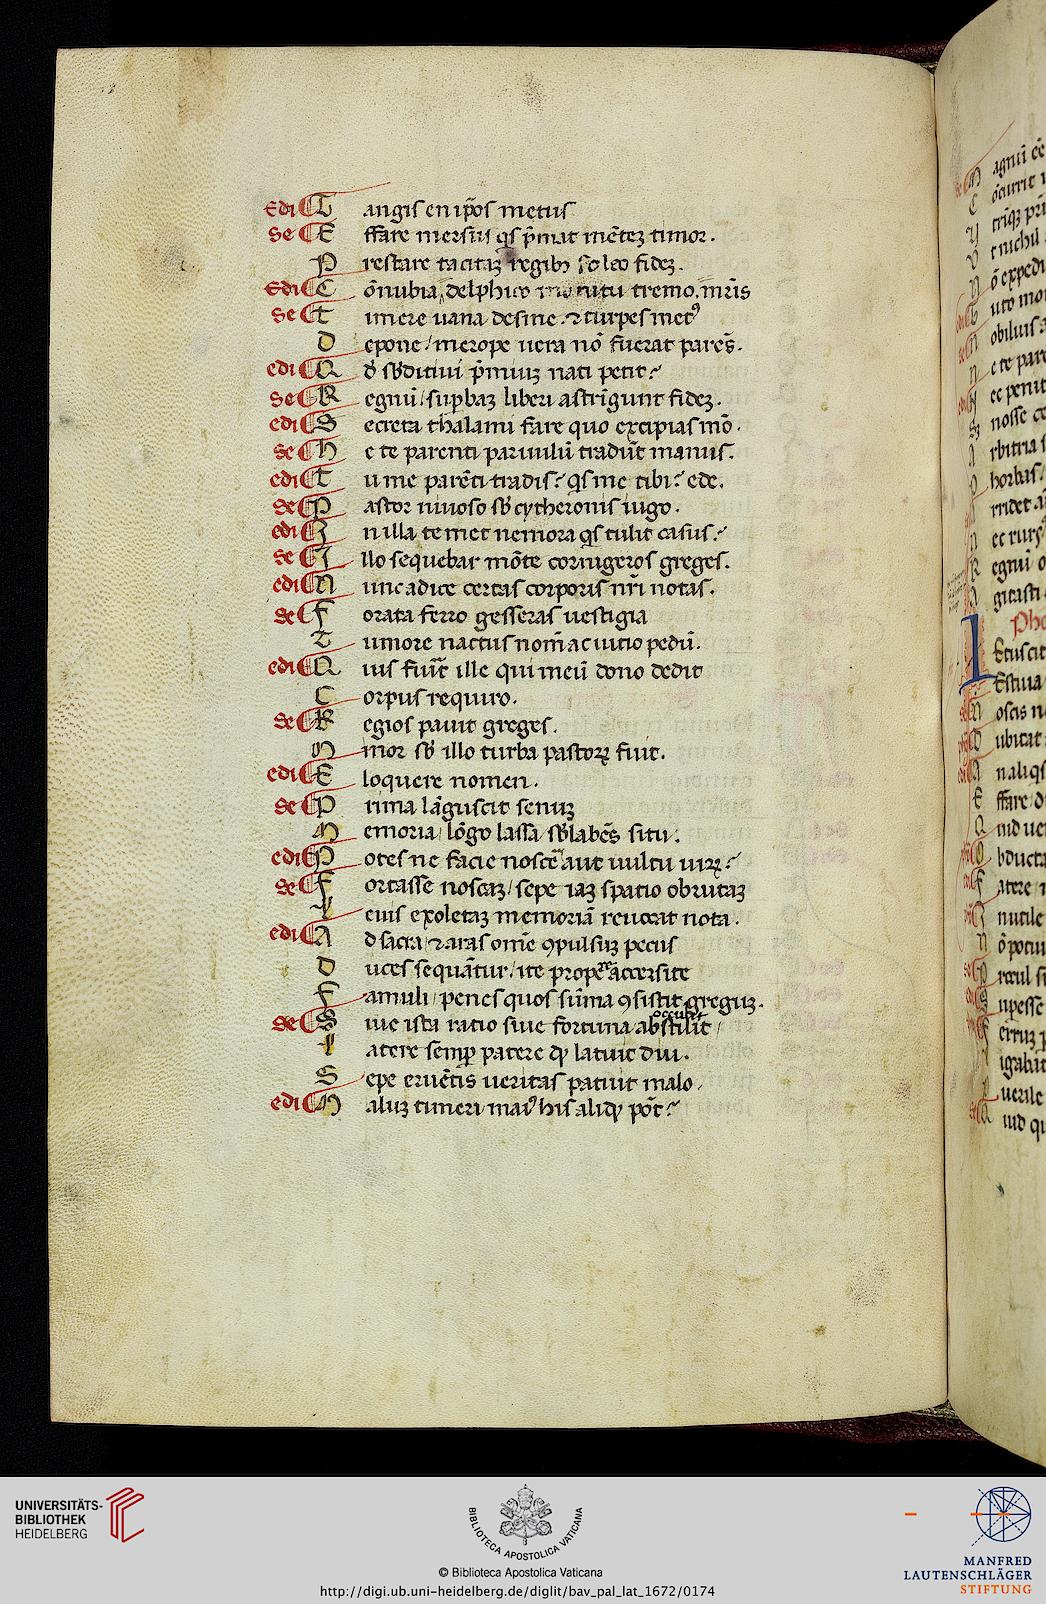 Edi T angis en ip̃os metus
Se E ffare mersus q̨s p̃mat mẽteʒ timor.
P restare tacitaʒ regibʒ soleo fideʒ.
Edi C õnubia, delphico tremo. mr̃is
Se T imere uana desine. ⁊ turpes met᾿
D epone / merope uera nõ fuerat parẽs.
edi Q ď sƀditiui p̃miuʒ nati petit?
Se R egnũ / suꝑbaʒ liberi astrĩgunt fideʒ.
edi S ecreta thalami fare quo excipias mõ.
se H e te parenti paruulũ tradũt manus.
edi T u me parẽti tradis? q̨s me tibi? ede.
se P astor niuoso sƀ cytheronis iugo.
edi I n illa temet nemora q̨s tulit casus?
se I llo sequebar mõte cornigeros greges.
edi N unc adice certas corporis nr̃i notas.
se F orata ferro gesseras uestigia
T umore nactus nom̃ ac uitio pedũ.
edi Q uis fuit̃ ille qui meũ dono dedit
C orpus requiro.
se R egios pauit greges.
M inor sƀ illo turba pastoꝝ fuit.
edi E loquere nomen.
se P rima lãguscit senuʒ
M emoria / lõgo lassa sƀlabẽs situ.
edi P otes ne facie noscẽ aut uultu uiꝝ?
se F ortasse noscaʒ / sepe iaʒ spatio obrutaʒ
L euis exoletaʒ memoriã reuocat nota.
edi A d sacra / ⁊ aras om̃e ꝯpulsuʒ pecus
D uces sequãtur / ite properãter accersite
F amuli / penes quos sũma ꝯsistit greguʒ.
occuluit
se S iue ista ratio siue fortuna abstulit /
L atere semꝑ patere qď latuit diu.
S epe eruẽtis ueritas patuit malo.
edi M aluʒ timeri mai᾿ his aliqď põt?
UNIVERSITÄTS-
BIBLIOTHEK
HEIDELBERG
BIBLIOTECA APOSTOLICA VATICANA
© Biblioteca Apostolica Vaticana
http://digi.ub.uni-heidelberg.de/diglit/bav_pal_lat_1672/0174
MANFRED
LAUTENSCHLÄGER
STIFTUNG